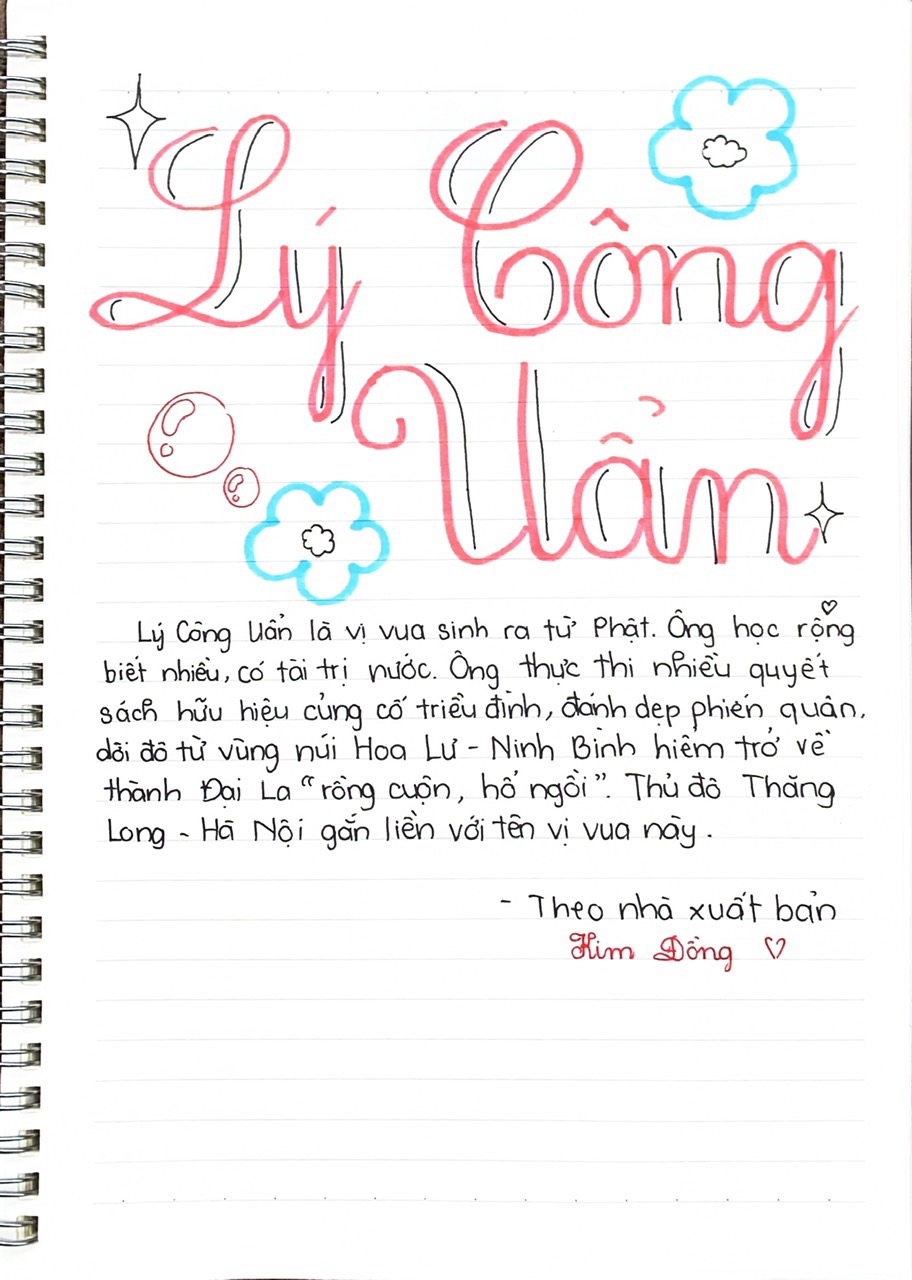 Lý Công
Uẩn
Lý Công Uẩn là vị vua sinh ra từ Phật. Ông học rộng
biết nhiều, có tài trị nước. Ông thực thi nhiều quyết
sách hữu hiệu củng cố triều đình, đánh dẹp phiến quân,
dời đô từ vùng núi Hoa Lư - Ninh Bình hiểm trở về
thành Đại La "rồng cuộn, hổ ngồi". Thủ đô Thăng
Long - Hà Nội gắn liền với tên vị vua này.
- Theo nhà xuất bản
Kim Đồng